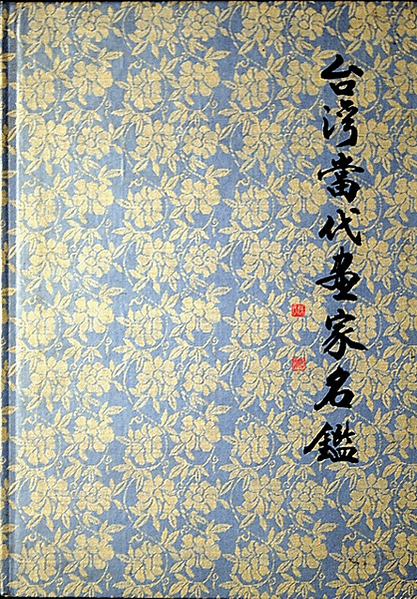 台灣當代畫家名鑑